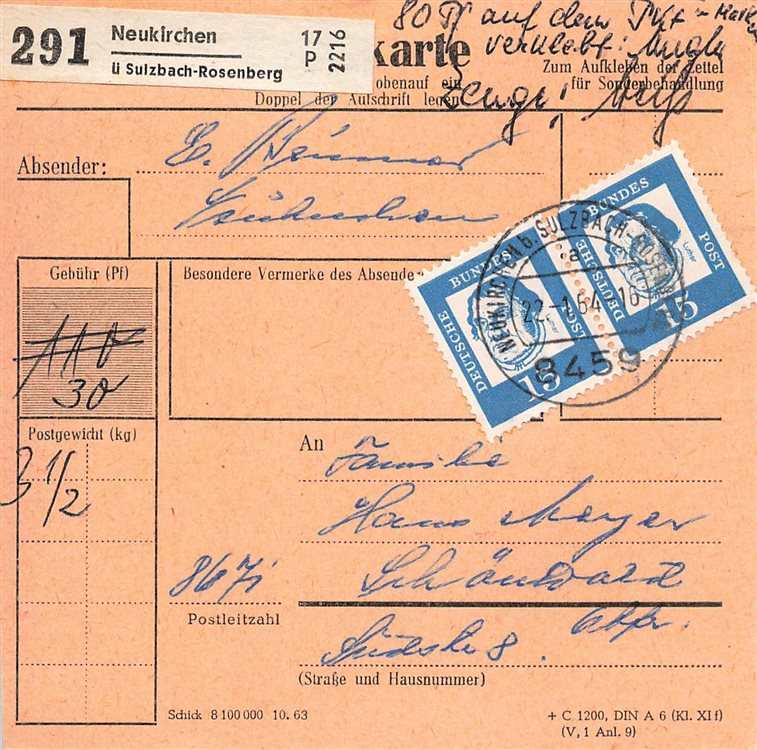 291 Neukirchen 17 P 2216
ü Sulzbach-Rosenberg
80 Pf auf dem
verklebt:
karte
Zum Aufkleben der Zettel
für Sonderbehandlung
obenauf ein
Doppel der Aufschrift legen
Absender:
E.
Gebühr (Pf)
110
30
Besondere Vermerke des Absende
DEUTSCHE BUNDESPOST
15
DEUTSCHE BUNDESPOST
Luther
15
22.-1.64.-16
a
8459
Postgewicht (kg)
3 1/2
An
Familie
Hans Meyer
8671
Schönwald
Postleitzahl
Opf.
8
(Straße und Hausnummer)
Schick 8 100 000 10. 63
+ C 1200, DIN A 6 (Kl. XI f)
(V, 1 Anl. 9)